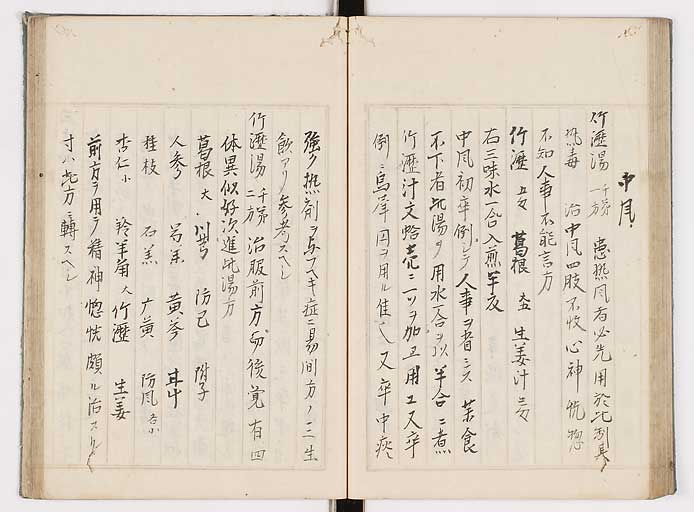 中風
竹瀝湯 千第一方 患熱風者必先用於此制其
熱毒 治中風四肢不收心神恍惚
不知人事不能言方
竹瀝 葛根 生姜汁
右三味水一合入煎半反
中風初卒倒シテ人事ヲ省ミス 茶食
不下者此湯ヲ用水一合ヲ以半合ニ煮
竹瀝汁文蛤壱ニツヲ加ヱ用エ又卒
倒ニ烏犀円ヲ用ル佳シ又卒中痰
強ク熱剤ヲ与フヘキ症ニ易簡方ノ三生
飲アリ参考スヘシ
竹瀝湯 千第二方 治服前方後覚有四
体異似好次進此湯方
葛根大 川芎 防己 附子
人参 芍薬 黄芩 甘艸
桂枝 石羔 麻黄 防風各小
杏仁小 羚羊角大 竹瀝 生姜
前方ヲ用テ精神惚恍頗ル治スル
寸ハ此方ニ轉スヘシ